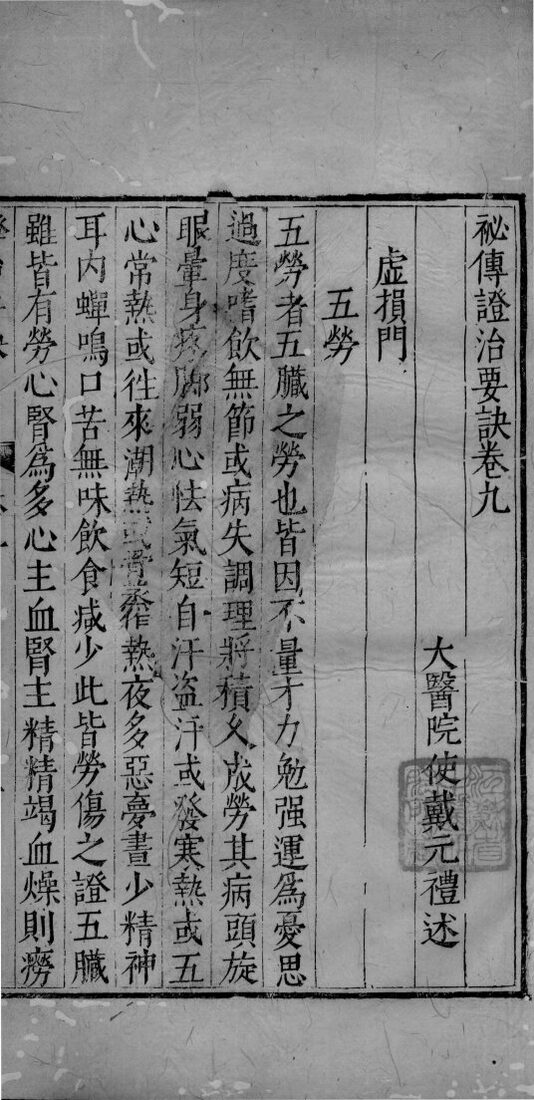 祕傳證治要訣卷九
大醫院使戴元禮述
虛損門
五勞
五勞者五臟之勞也皆因不量才力勉强運爲憂思
過度嗜飲無節或病失調理將積久成勞其病頭旋
眼暈身疼脚弱心怯氣短自汗盗汗或發寒熱或五
心常熱或徃來潮熱或骨蒸作熱夜多惡夢晝少精神
耳内蟬鳴口苦無味飲食减少此皆勞傷之證五臟
雖皆有勞心腎爲多心主血腎主精精竭血燥則癆